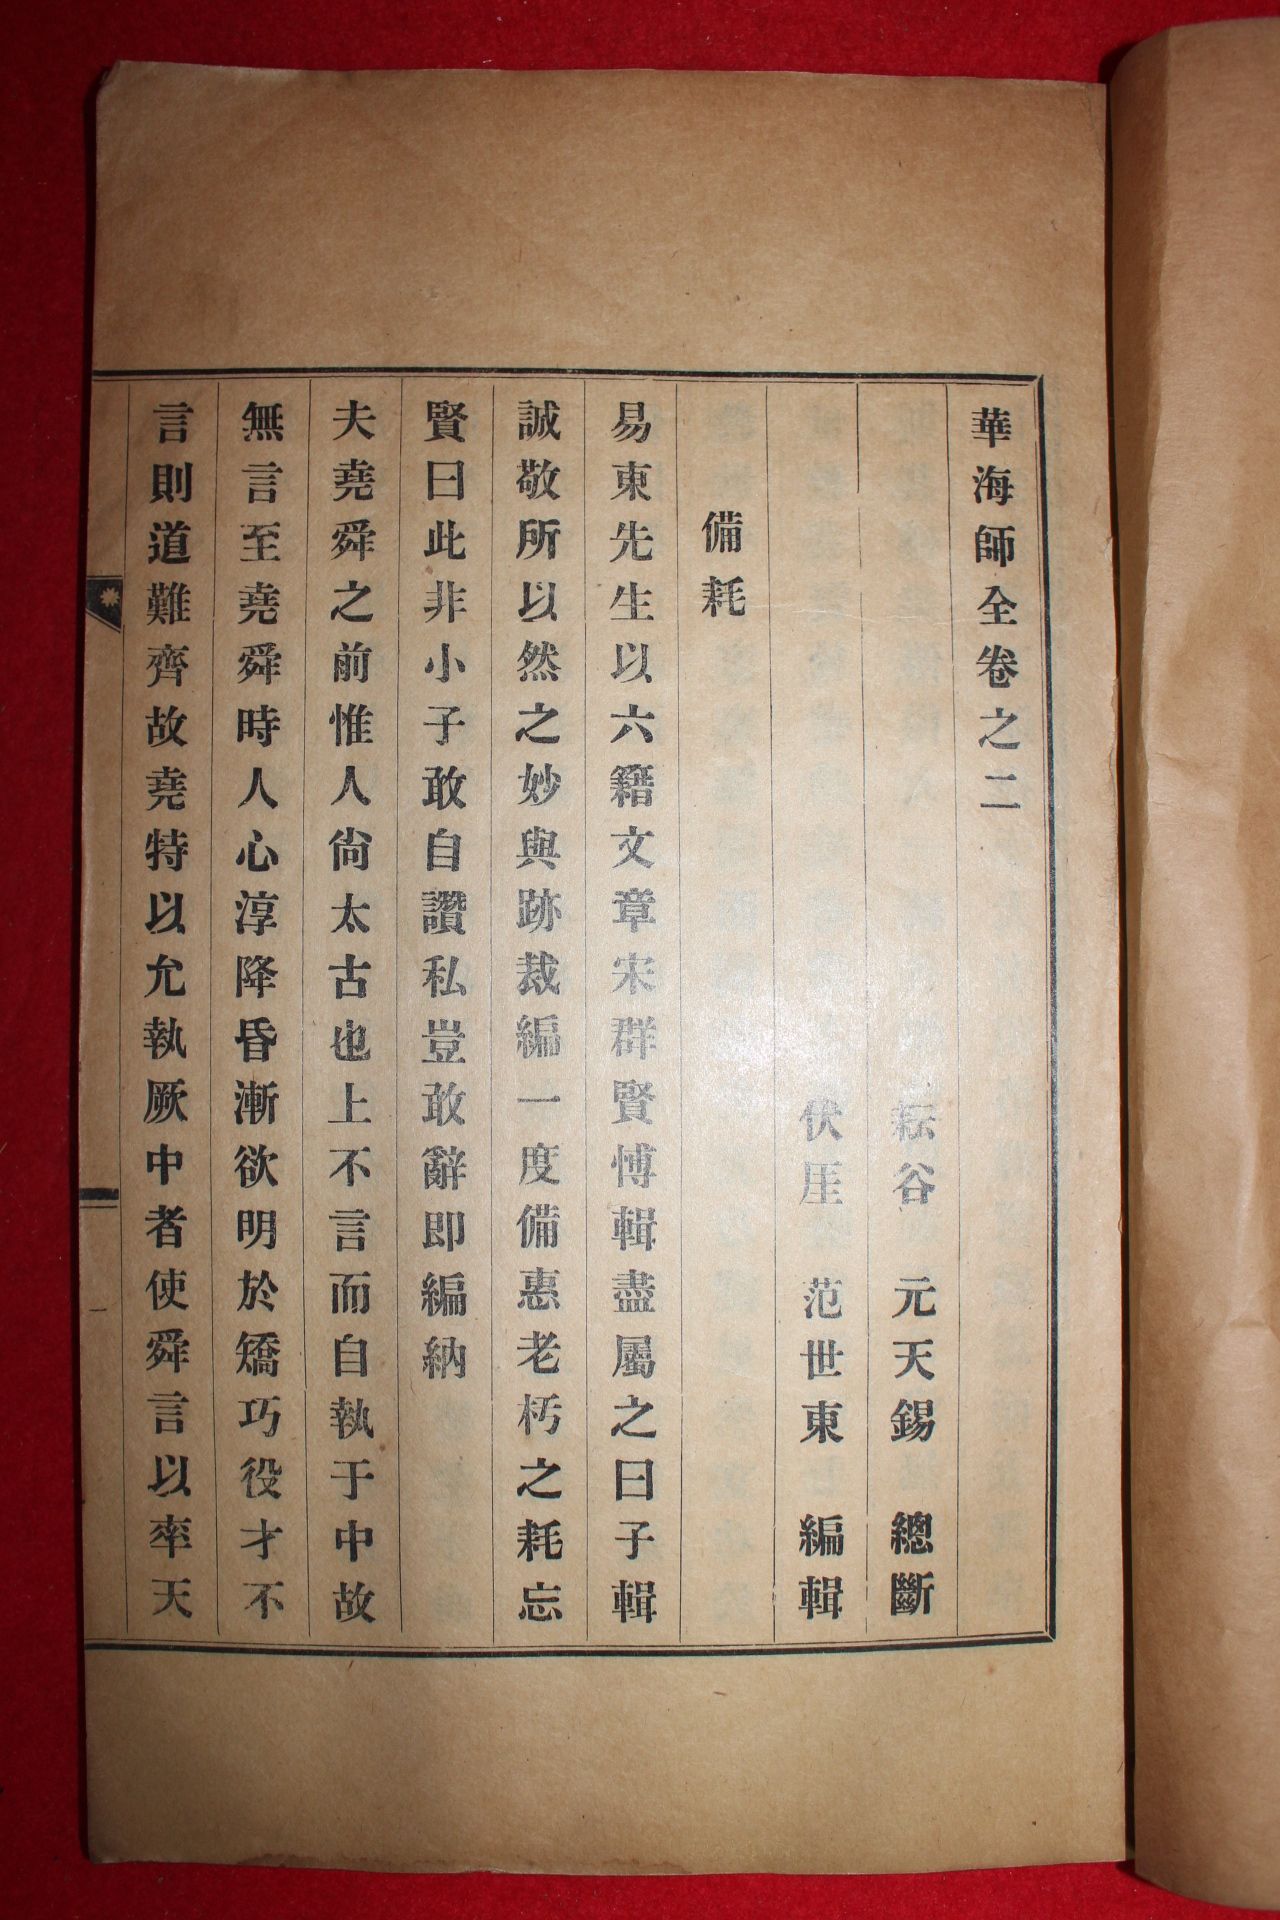 華海師全卷之二
耘谷 元天錫 總斷
伏厓 范世東 編輯
備耗
易東先生以六籍文章宋群賢博輯盡屬之曰子輯
誠敬所以然之妙與跡裁編一度備惠老朽之耗忘
賢曰此非小子敢自讚私豈敢辭即編納
夫堯舜之前惟人尙太古也上不言而自執于中故
無言至堯舜時人心淳降昏漸欲明於矯巧役才不
言則道難齊故堯特以允執厥中者使舜言以率天
一